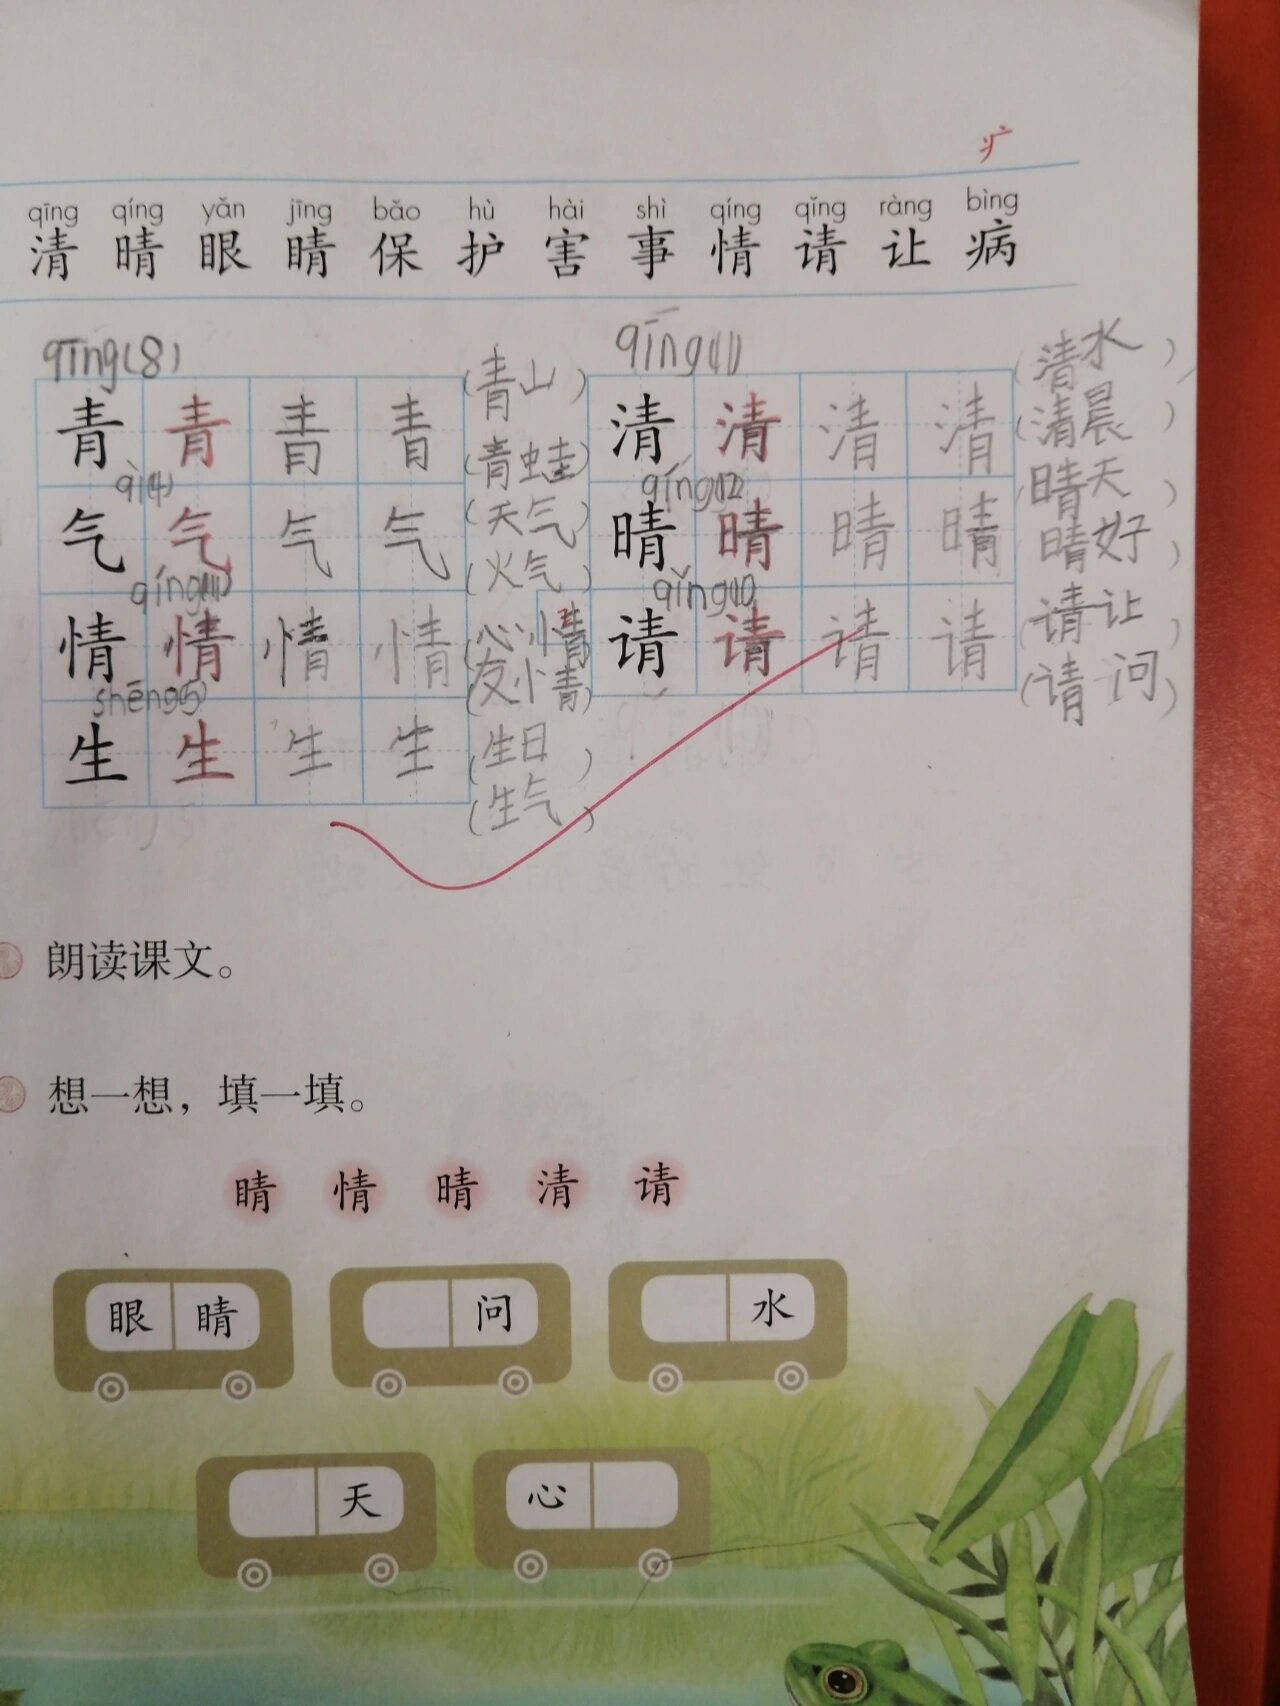 疒
qīng qíng yǎn jīng bǎo hù hài shì qíng qǐng ràng bìng
清 晴 眼 睛 保 护 害 事 情 请 让 病
qīng(8)
青 青 青 青 (青山)
(青蛙)
qì(4)
气 气 气 气 (天气)
(火气)
qíng(11)
情 情 情 情 (心情)
(友情)
shēng(5)
生 生 生 生 (生日)
(生气)
qīng(11)
清 清 清 清 (清水)
(清晨)
qíng(12)
晴 晴 晴 晴 (晴天)
晴好)
qǐng(10)
请 请 请 请 (请让)
(请问)
朗读课文。
想一想，填一填。
睛 情 晴 清 请
眼 睛 问 水
天 心